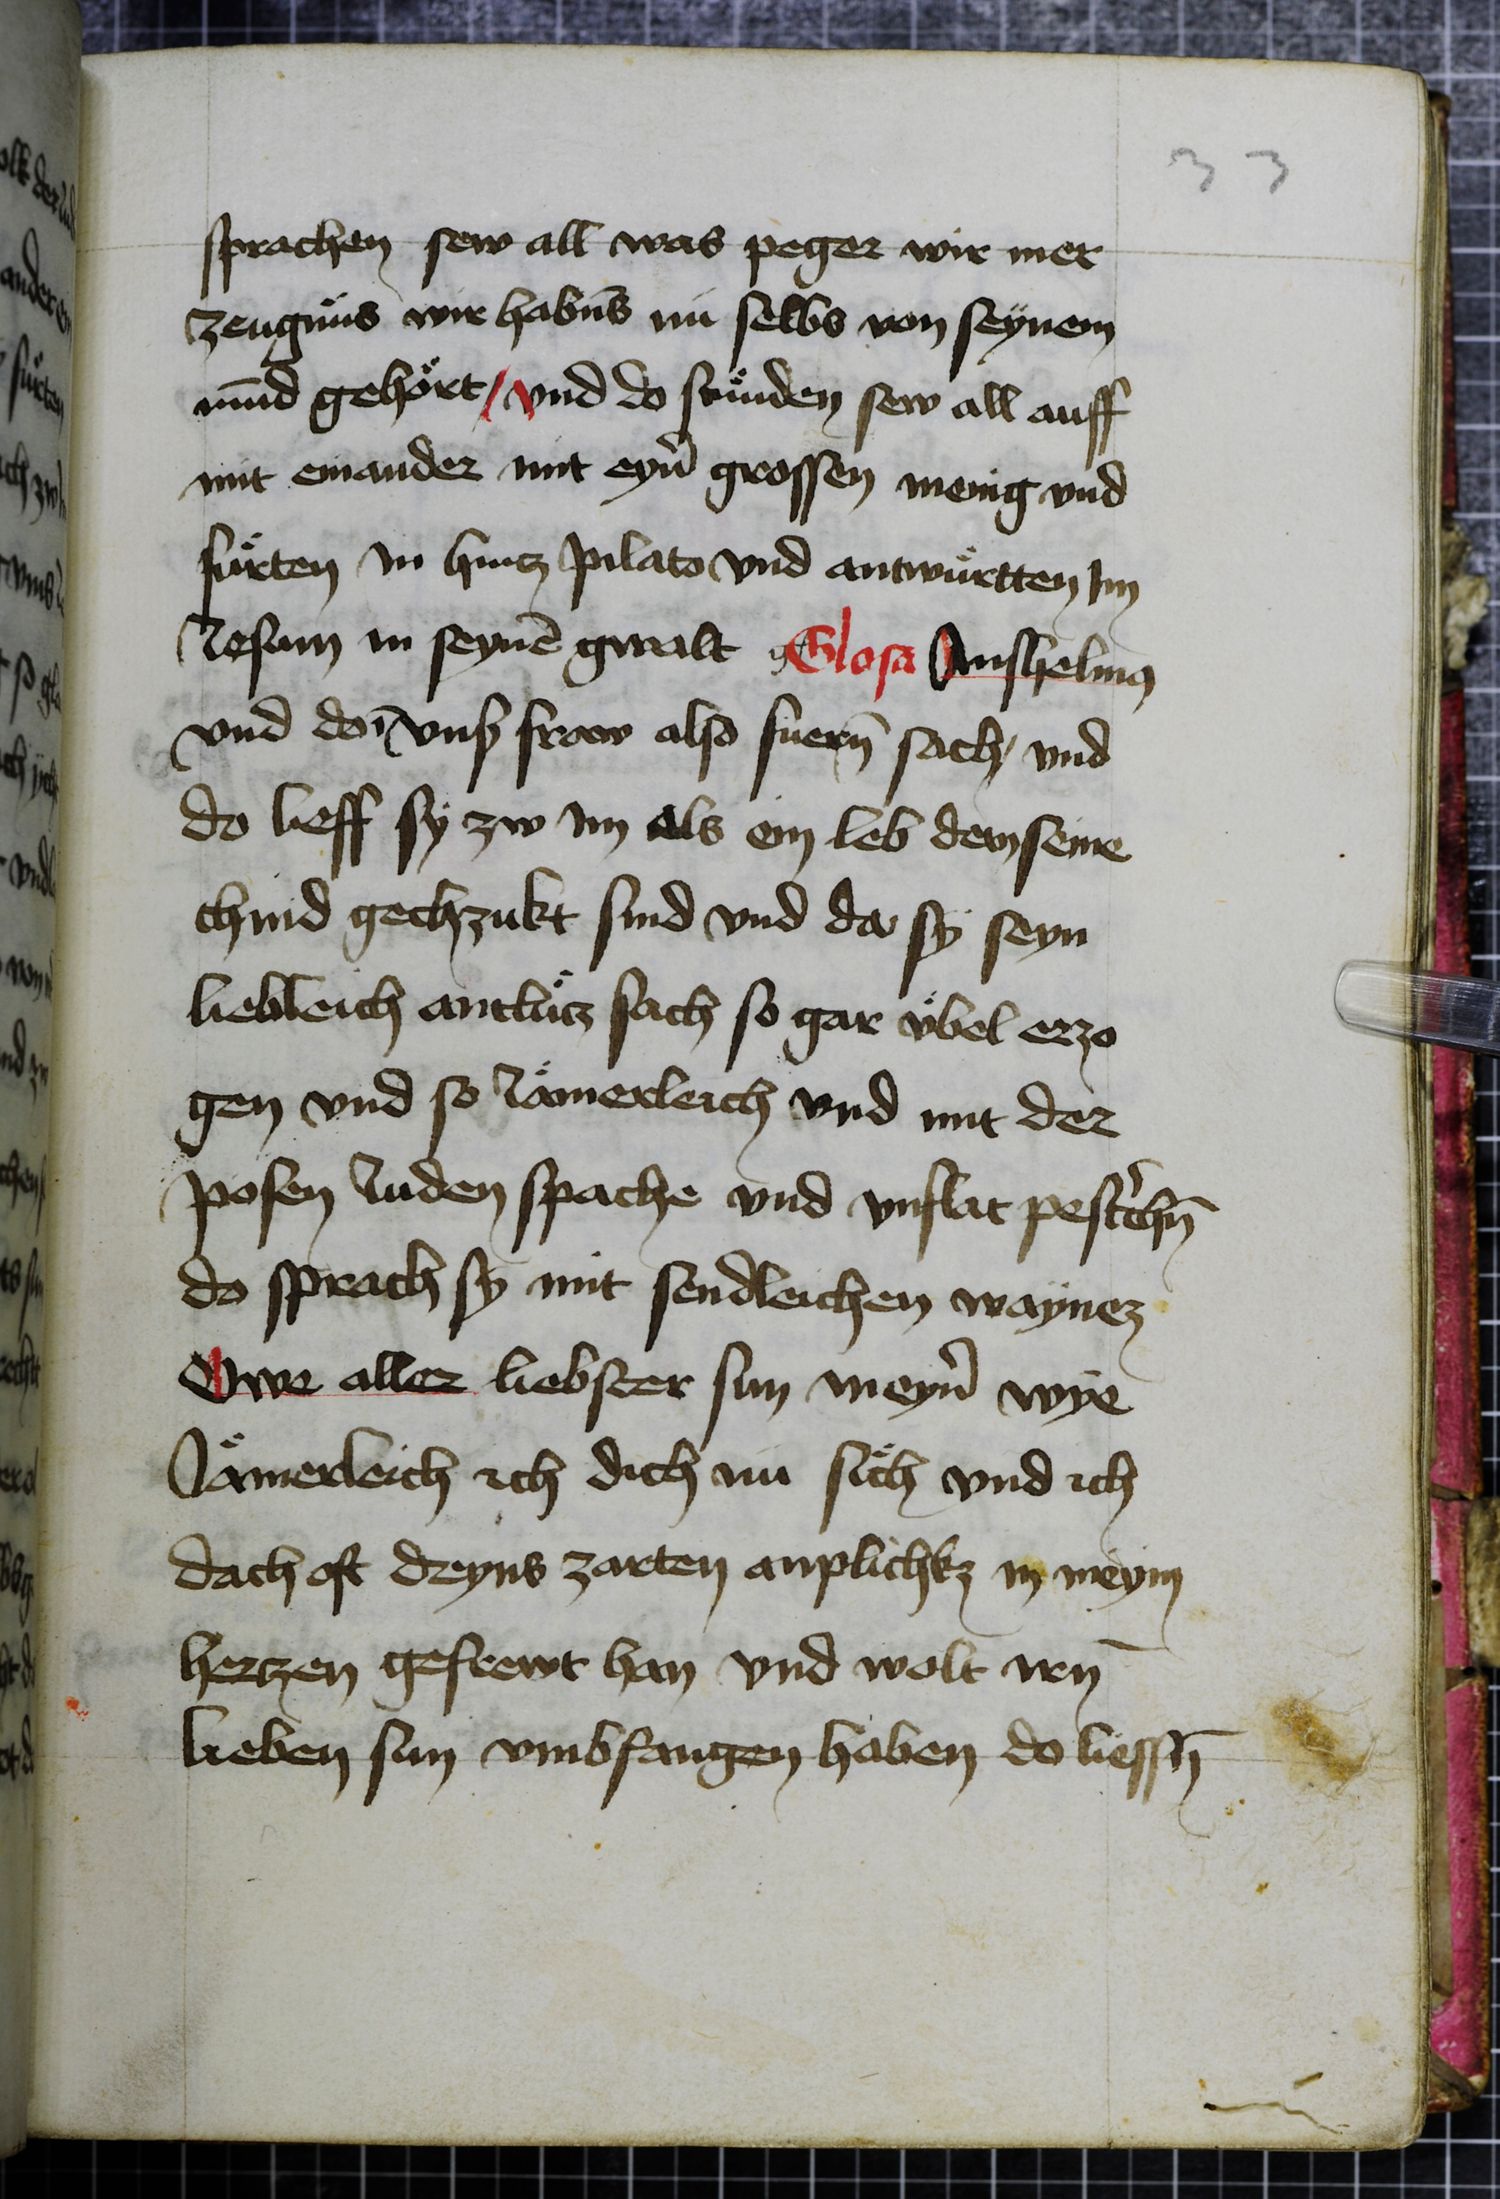 33
sprachen sew all was peger wir mer
zeugnüs wir habn̄s nu selbs von seÿnem
mūnd gehört / vnd do stuͤnden sew all auff
mit einander mit eyn̄ grossen menig vnd
fuͤrten in hincz pilato vnd antwuͤrtten Im
Jesum in seynē gwalt Glosa Anshelmꝯ
vnd do vnß fraw also fuern̄ sach / vnd
do lieff sÿ zw im als ein leb dem seine
chind gechzukt sind vnd da sÿ seyn
liebleich antlütz sach so gar vbel erzo
gen vnd so Jämerleich vnd mit der
posen Juden spache vnd vnflat
do sprach sÿ mit sendleichen waÿnez
Owe aller liebster sun meyn̄ wÿe
Jämerleich ich dich nu sich vnd ich
dach oft deyns zarten anplichkz in meÿm
herczen gefrewt han vnd wolt irn̄
lieben sun vmbfangen haben do liessn̄